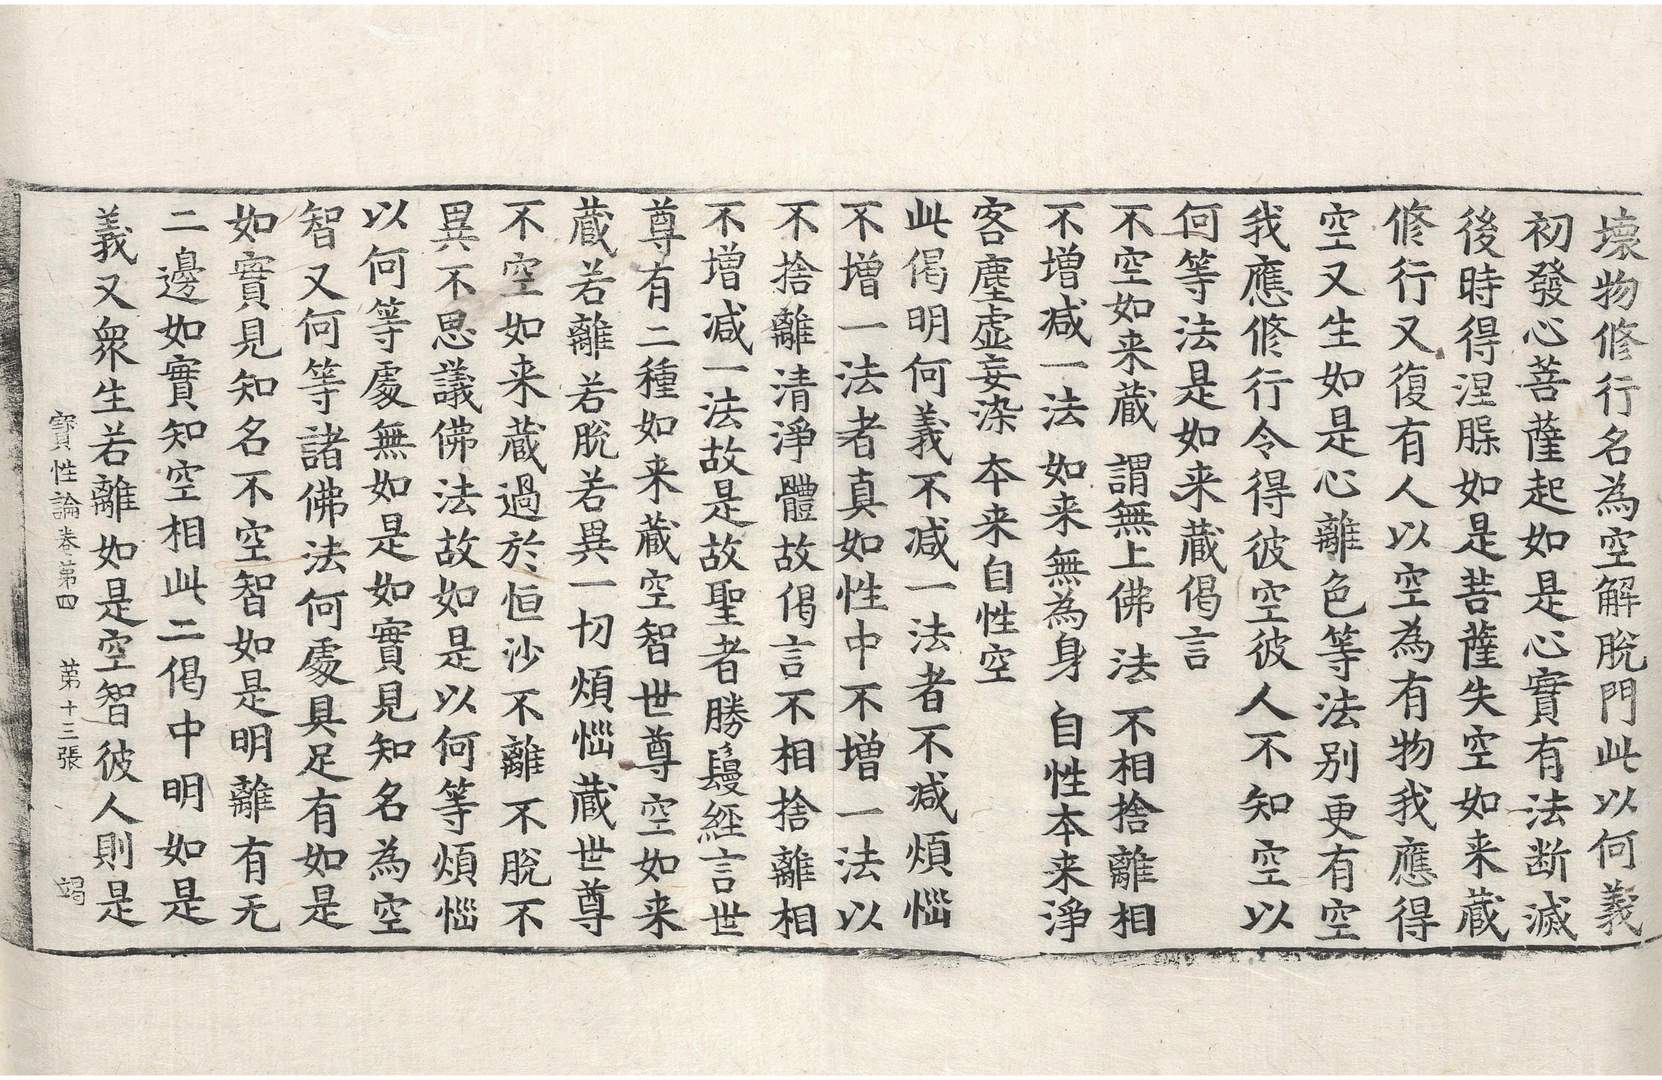 壞物修行名為空解脫門此以何義
初發心菩薩起如是心實有法断滅
後時得涅槃如是菩薩失空如来藏
修行又復有人以空為有物我應得
空又生如是心離色等法别更有空
我應修行令得彼空彼人不知空以
何等法是如来藏偈言
不空如来藏 謂無上佛法 不相捨離相
不增减一法 如来無為身 自性本来淨
客塵虚妄染 本来自性空
此偈明何義不减一法者不减煩惱
不增一法者真如性中不增一法以
不捨離清淨體故偈言不相捨離相
不增减一法故是故聖者勝鬘經言世
尊有二種如来藏空智世尊空如来
藏若離若脫若異一切煩惱藏世尊
不空如来藏過於恒沙不離不脫不
異不思議佛法故如是以何等煩惱
以何等處無如是如實見知名為空
智又何等諸佛法何處具足有如是
如實見知名不空智如是明離有无
二邊如實知空相此二偈中明如是
義又衆生若離如是空智彼人則是
寶性論卷第四 第十三張 竭